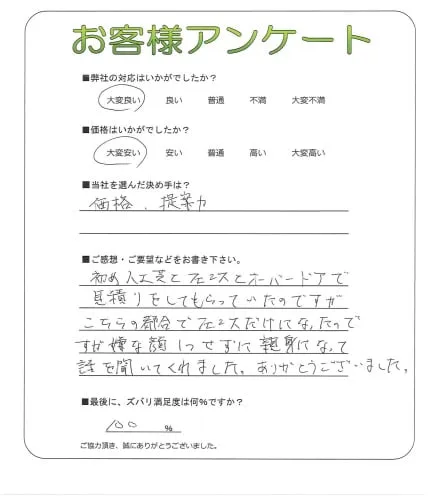 お客様アンケート
■弊社の対応はいかがでしたか?
大変良い 良い 普通 不満 大変不満
■価格はいかがでしたか?
大変安い 安い 普通 高い 大変高い
■当社を選んだ決め手は?
価格、提案力
■ご感想・ご要望などをお書き下さい。
初め人工芝とフェンスとオーバードアで
見積りをしてもらっていたのですが
こちらの都合でフェンスだけになったので
すが嫌な顔1つせずに親身になって
話を聞いてくれました。ありがとうございました。
■最後に、ズバリ満足度は何%ですか?
100 %
ご協力頂き、誠にありがとうございました。